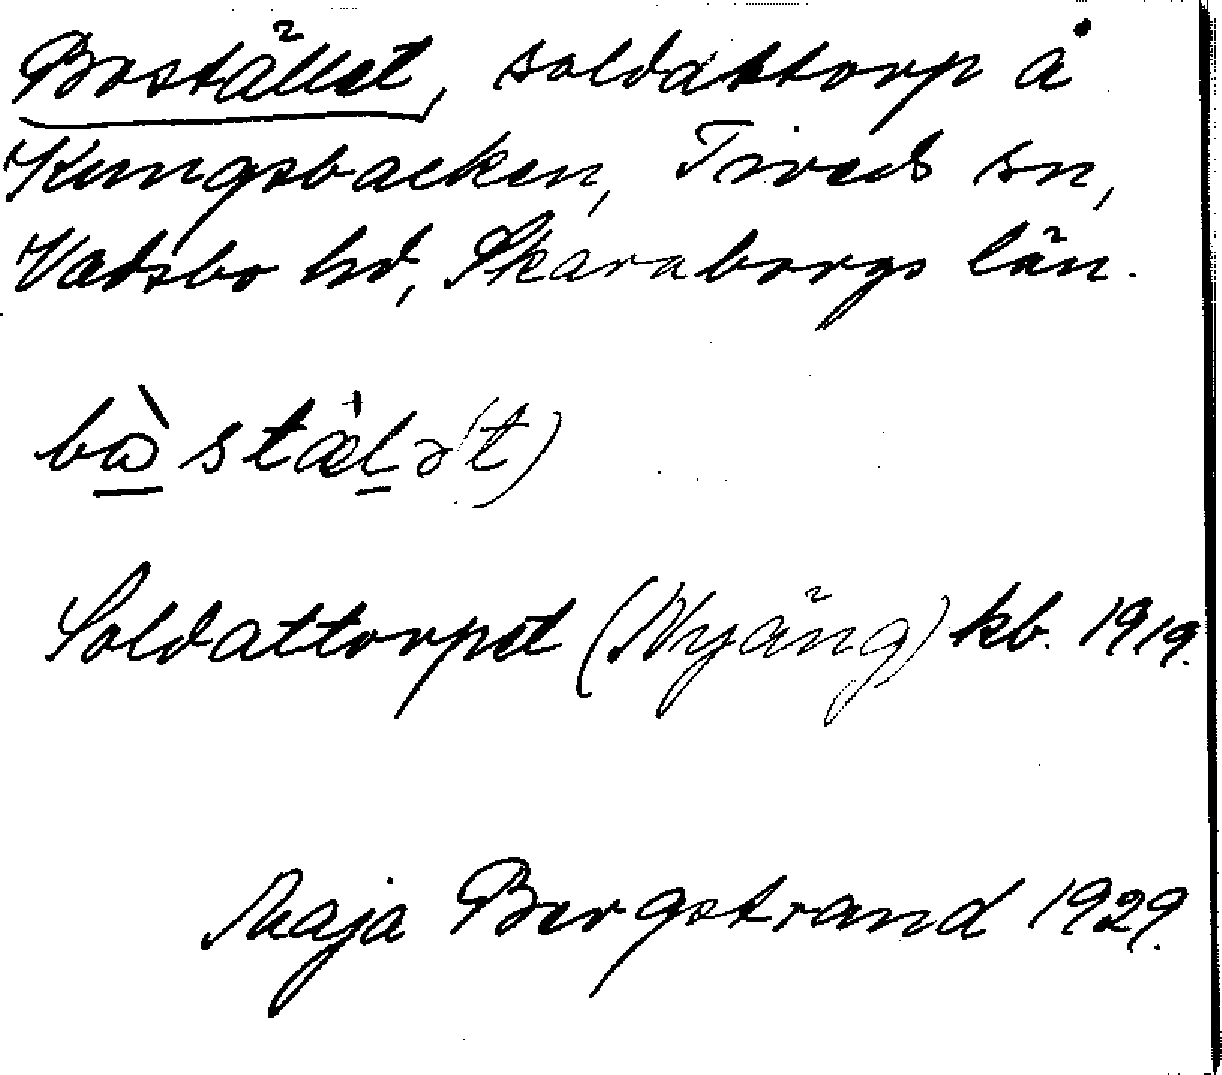 Bostället, soldattorp å
Kungsbacken, Tiveds sn,
Vadsbo hd, Skaraborgs län.
bɷ̀stæ̍lə(t)
Soldattorpet (Nyäng) kb. 1919.
Maja Bergstrand 1929.